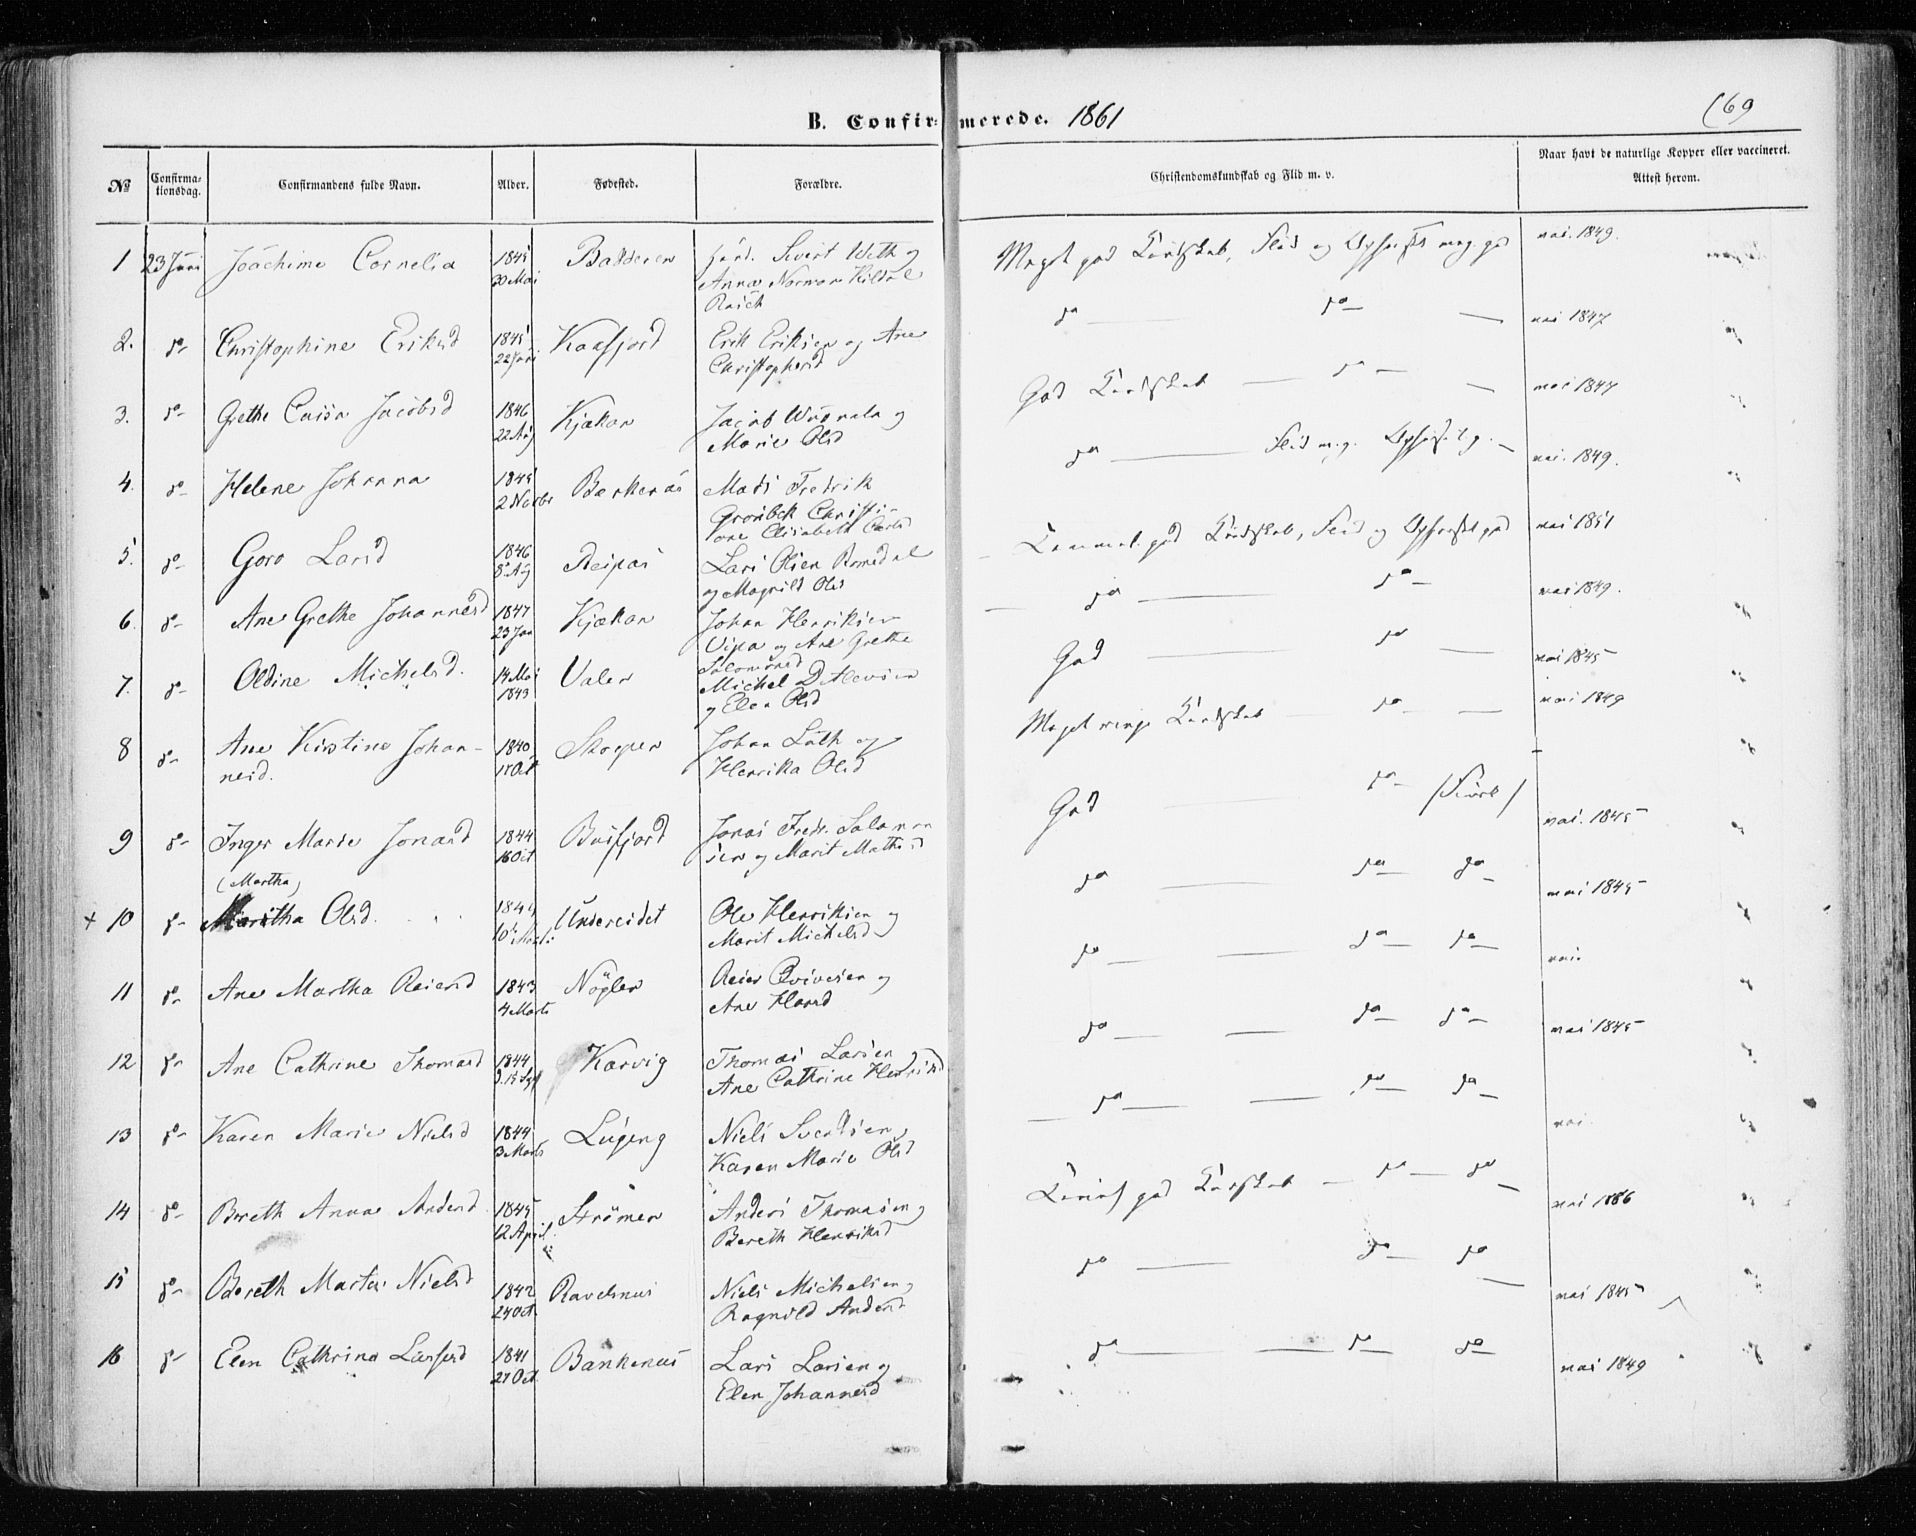 B. Confirmerede. 1861
169
No
Confirmationsdag.
Confirmandens fulde Navn.
Alder.
Fødested.
Forældre.
Christendomskundskab og Flid m. v.
Naar havt de naturlige Kopper eller vaccineret.
Attest herom.
1 23 Juni Joachime Cornelia 1845 20 Mai Badderen Sivert Weth og
Anna Norman Hildal
Rasch
Meget god Kundskab, Flid og Opførsel meg. god vac. 1849.
2. do Christophine Eriksd 1845 22 Juni Kaafjord Erik Eriksen og Ane
Christophersd
do do vac 1847
3. do Grethe Caisa Jacobsd 1846 22 Aug Kjækan Jacob Wuonala og
Marie Olsd
God Kundskab do vac 1847
4. do Helene Johanna 1845 2 Novbr Mads Fredrik
Grønbek Christi-
ane Elisabeth Carlsd
do Flid m.g. Opførsel g. vac. 1849.
5. do Goro Larsd 1846 8 Aug Reipas Lars Olsen Romsdal
og Magnild Olsd
Temmel. god Kundskab, Flid og Opførsel god vac 1851
6. do Ane Grethe Johannesd 1847 23 Jan Kjækan Johan Henriksen
Vipa og Ane Grethe
Salomonsd
do do vac 1849.
7. do Oldine Michelsd. 14 Mai 1843 Valen Michel Detlevsen
og Elen Olsd
God do vac 1845
8 do Ane Kirstine Johan-
nesd. 1840 15 Oct Skorpen Johan Luth og
Henrika Olsd
Meget ringe Kundskab do vac 1849
9 do Inger Marie Jonasd 1844 16 Oct Bursfjord Jonas Fredr. Salomon
sen og Marit Mathisd
God do vac. 1845
(Martha)
+ 10 do Maritha Olsd. 1844 10 Marts Undereidet Ole Henriksen og
Marit Michelsd
do do do vac 1845
11 do Ane Martha Reiersd 1843 4 Marts Nøglen Reier Qvivesen og
Ane Hansd
do do do vac.
12 do Ane Cathrine Thomasd 1844 Karvig Thomas Larsen
Ane Cathrine Henriksd
do do do vac 1845
13 do Karen Marie Nielsd 1844 3 Marts Niels Svendsen
Karen Marie Olsd
do do do vac.
14 do Bereth Anna Andersd 1845 12 April Strømen Anders Thomasen og
Bereth Henriksd
god Kundskab do do vac
15 do Bereth Martha Nielsd 1842 24 Oct. Ravelsnæs Niels Michelsen og
Ragnild Andersd
do do do vac 1845
16 do Elen Cathrina Larsesd 1841 27 Oct. Bankenæs Lars Larsen og
Elen Johannesd
do do do vac 1849